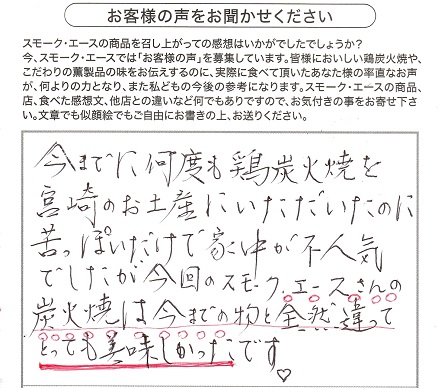 お客様の声をお聞かせください
スモーク・エースの商品を召し上がっての感想はいかがでしたでしょうか?
今、スモーク・エースでは「お客様の声」を募集しています。皆様においしい鶏炭火焼や、
こだわりの薫製品の味をお伝えするのに、実際に食べて頂いたあなた様の率直なお声
が、何よりの力となり、また私どもの今後の参考になります。スモーク・エースの商品、
店、食べた感想文、他店との違いなど何でもありですので、お気付きの事をお寄せ下さ
い。文章でも似顔絵でもご自由にお書きの上、お送りください。
今までに何度も鶏炭火焼を
宮崎のお土産にいただいたのに
苦っぽいだけで家中が不人気
でしたが今回のスモーク.エースさんの
炭火焼は今までの物と全然違って
とっても美味しかったです♡